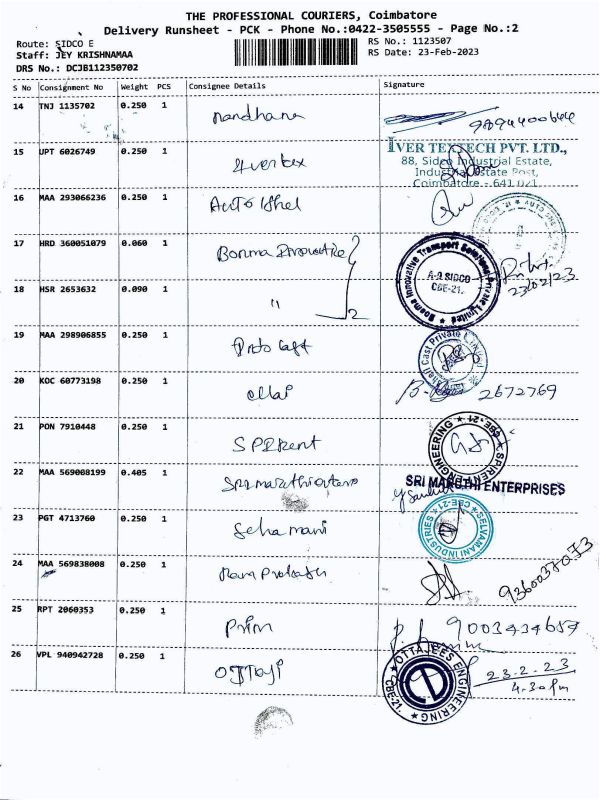 THE PROFESSIONAL COURIERS, Coimbatore
Delivery Runsheet - PCK - Phone No.:0422-3505555 - Page No.:2
Route: SIDCO E
Staff: JEY KRISHNAMAA
DRS No.: DCJB112350702
RS No.: 1123507
RS Date: 23-Feb-2023
S No Consignment No Weight PCS Consignee Details Signature
14 TNJ 1135702 0.250 1 nandhana 9894400644
15 UPT 6026749 0.250 1 4vertex
IVER TEXTECH PVT. LTD.,
88, Sidco Industrial Estate,
Industrial Estate Post,
Coimbatore - 641 021.
16 MAA 293066236 0.250 1
17 HRD 360051079 0.060 1
Booma Innovative Transport Solutions Private Limited
A-9 SIDCO
CBE-21.
23/02/23
18 HSR 2653632 0.090 1 "
2
19 MAA 298906855 0.250 1
Shell Cast Private Limited
20 KOC 60773198 0.250 1 2672769
21 PON 7910448 0.250 1
SPIRENT ENGINEERING CBE-21
22 MAA 569008199 0.405 1
SRI MARUTHI ENTERPRISES
23 PGT 4713760 0.250 1 Selvamani
SELVAMANI INDUSTRIES CBE-21
24 MAA 569838008 0.250 1 Ram Prakash 9360037073
25 RPT 2060353 0.250 1 Prim 9003434657
26 VPL 940942728 0.250 1 Ottoji
OTTAJEES ENGINEERING CBE-21.
23.2.23
4.30pm